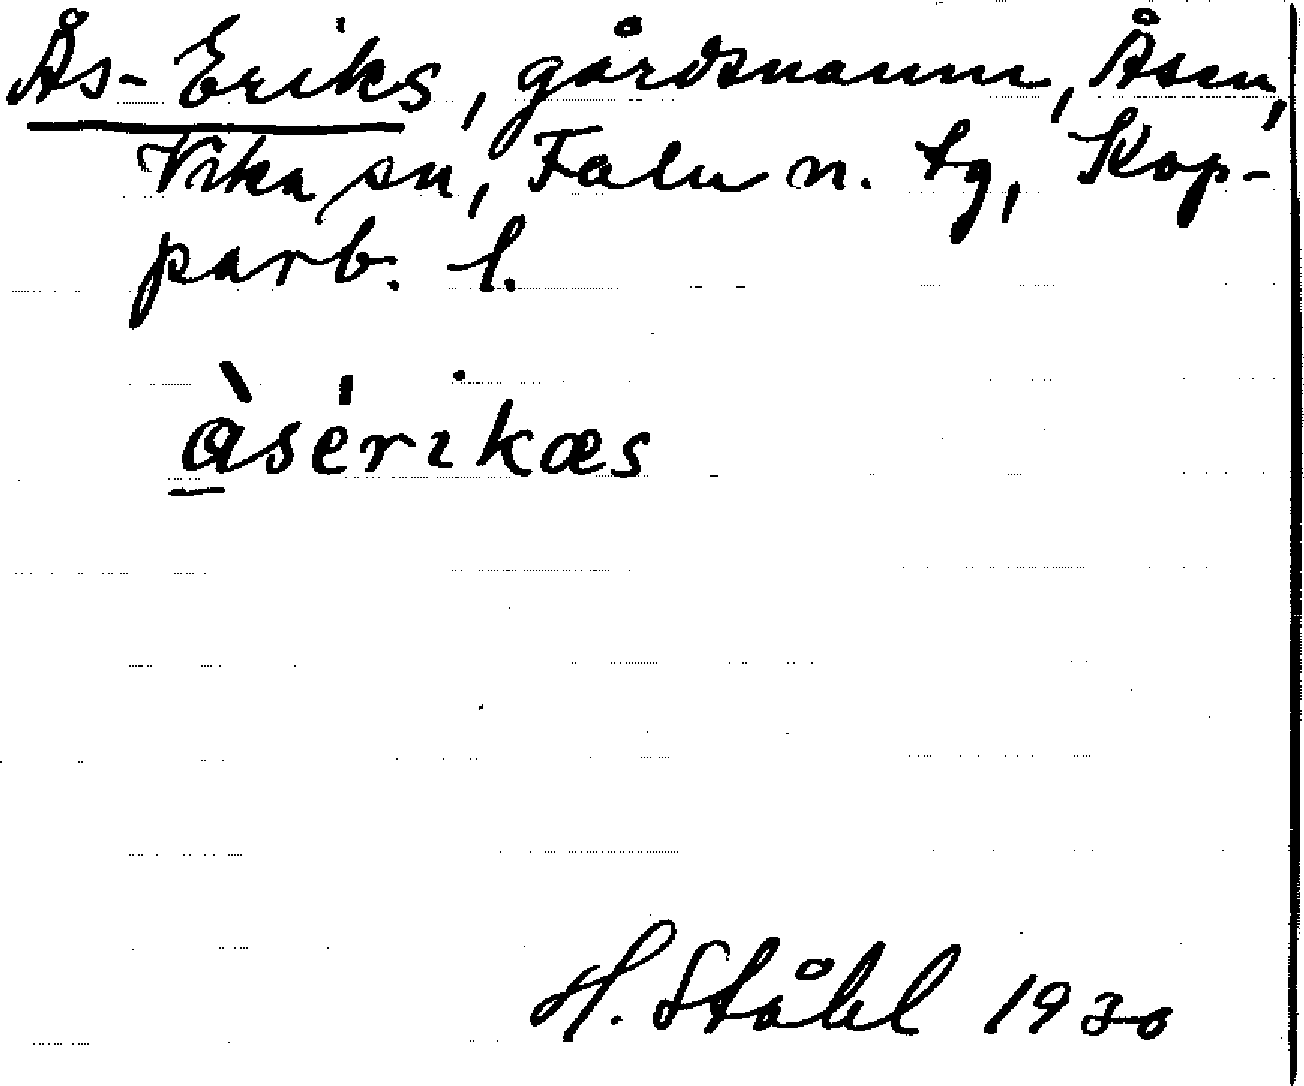 Ås-Eriks, gårdsnamn, Åsen,
Vika sn, Falu n. tg, Kop-
parb. l.
àsérikæs
H. Ståhl 1930